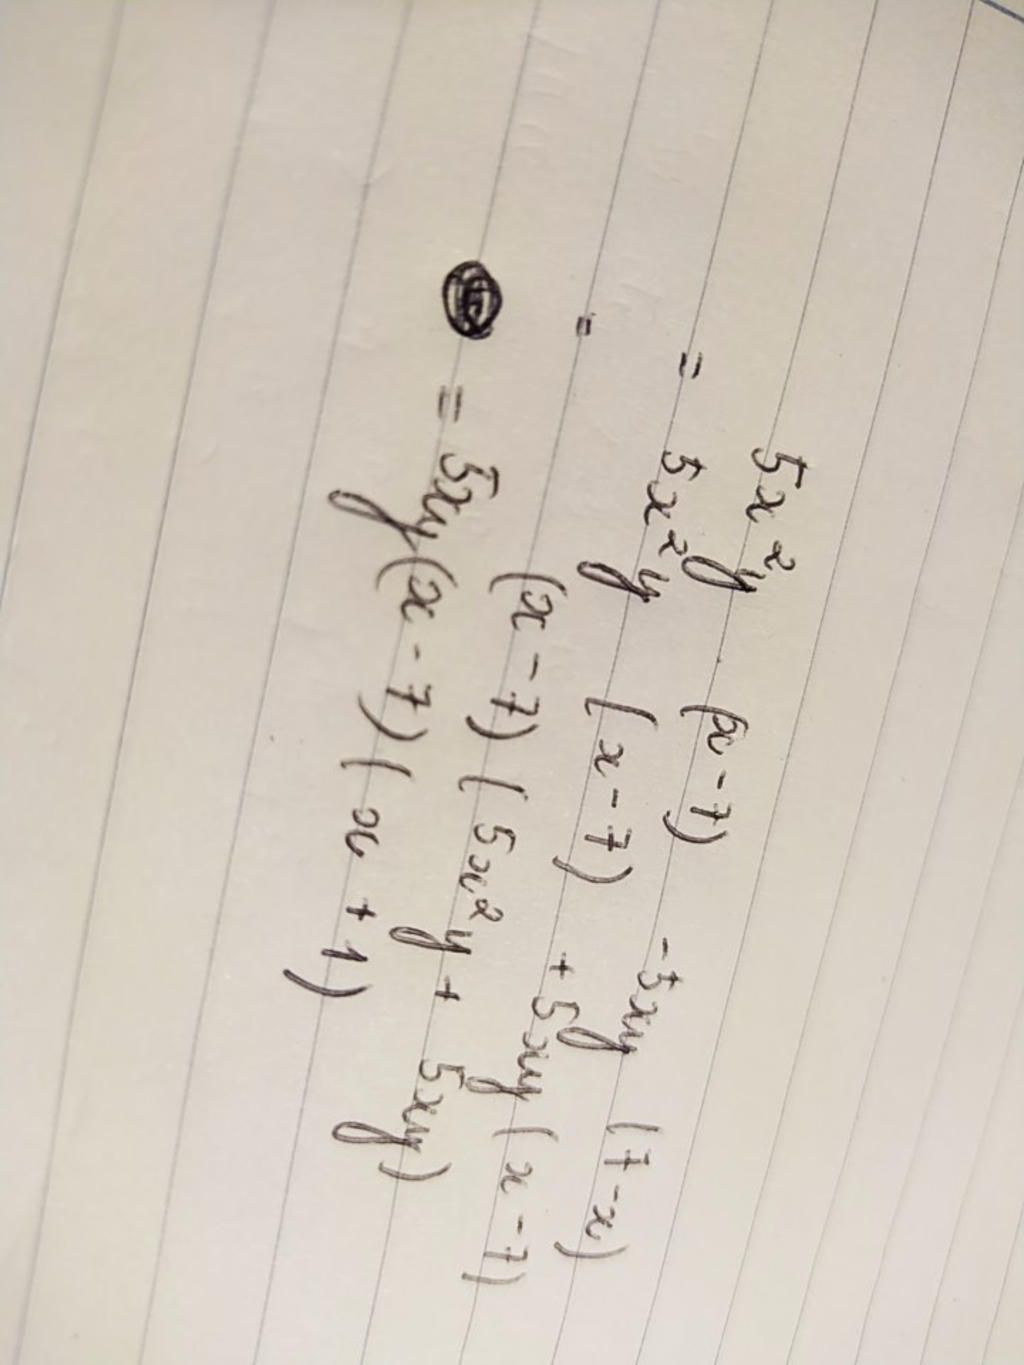 5x²y (x-7) -5xy (7-x)
= 5x²y (x-7) +5xy (x-7)
= (x-7) (5x²y + 5xy)
= 5xy(x-7) (x+1)